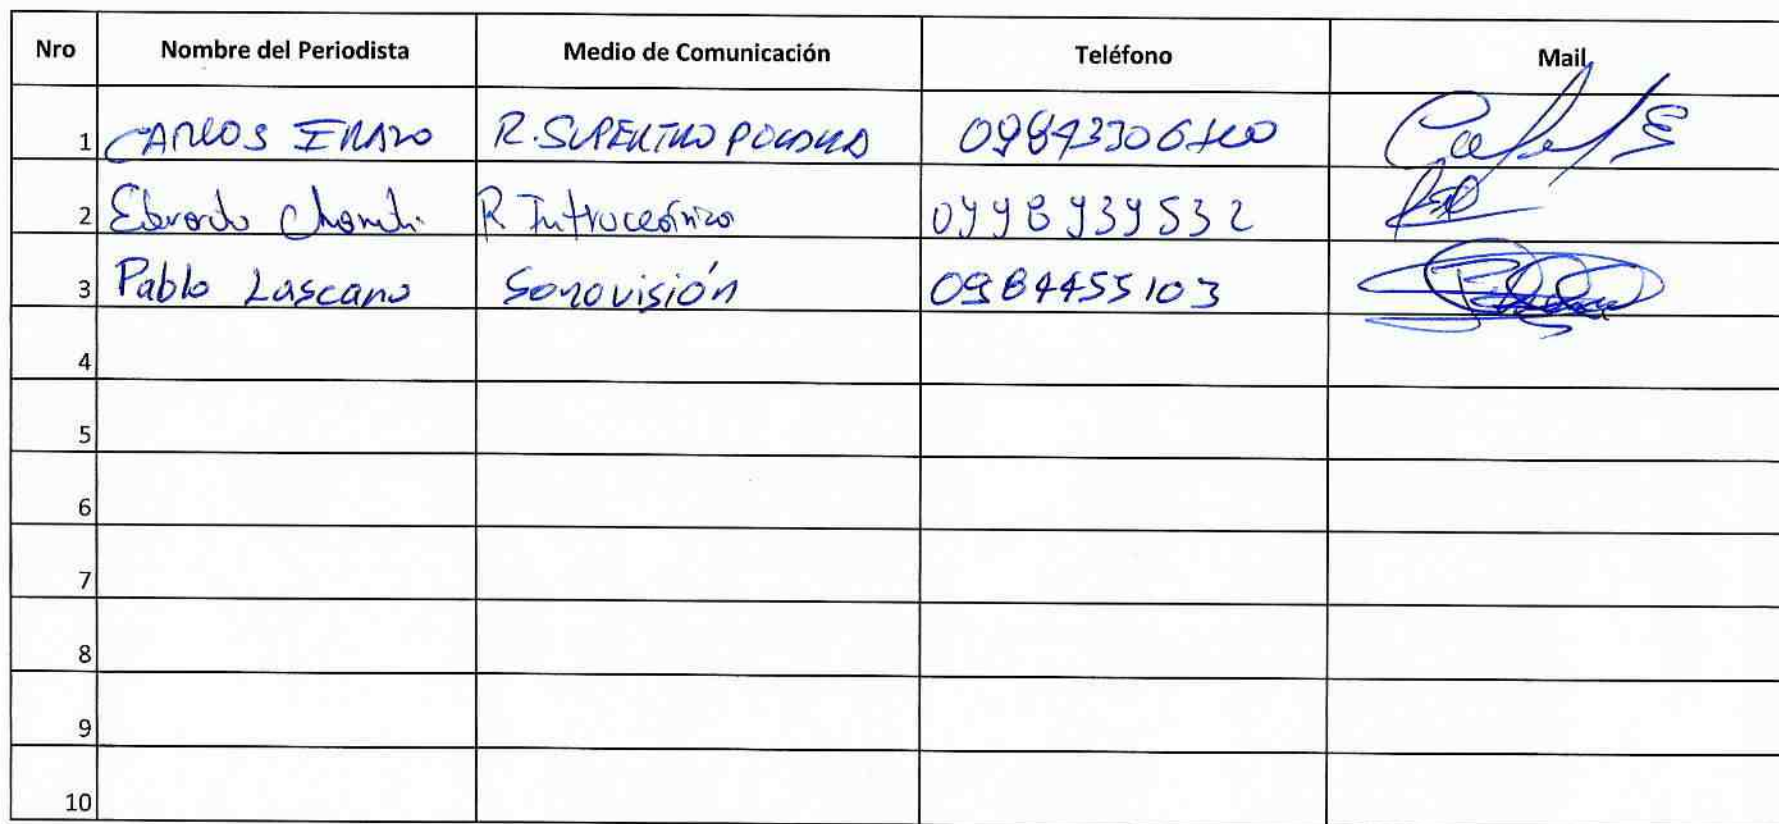 Nro Nombre del Periodista Medio de Comunicación Teléfono Mail
1 CARLOS ERAZO R. SUPERTROPOLIS
2 Eduardo R Intraoceánica 0998939532
3 Pablo Lascano Sonovisión 0984455103
4
5
6
7
8
9
10